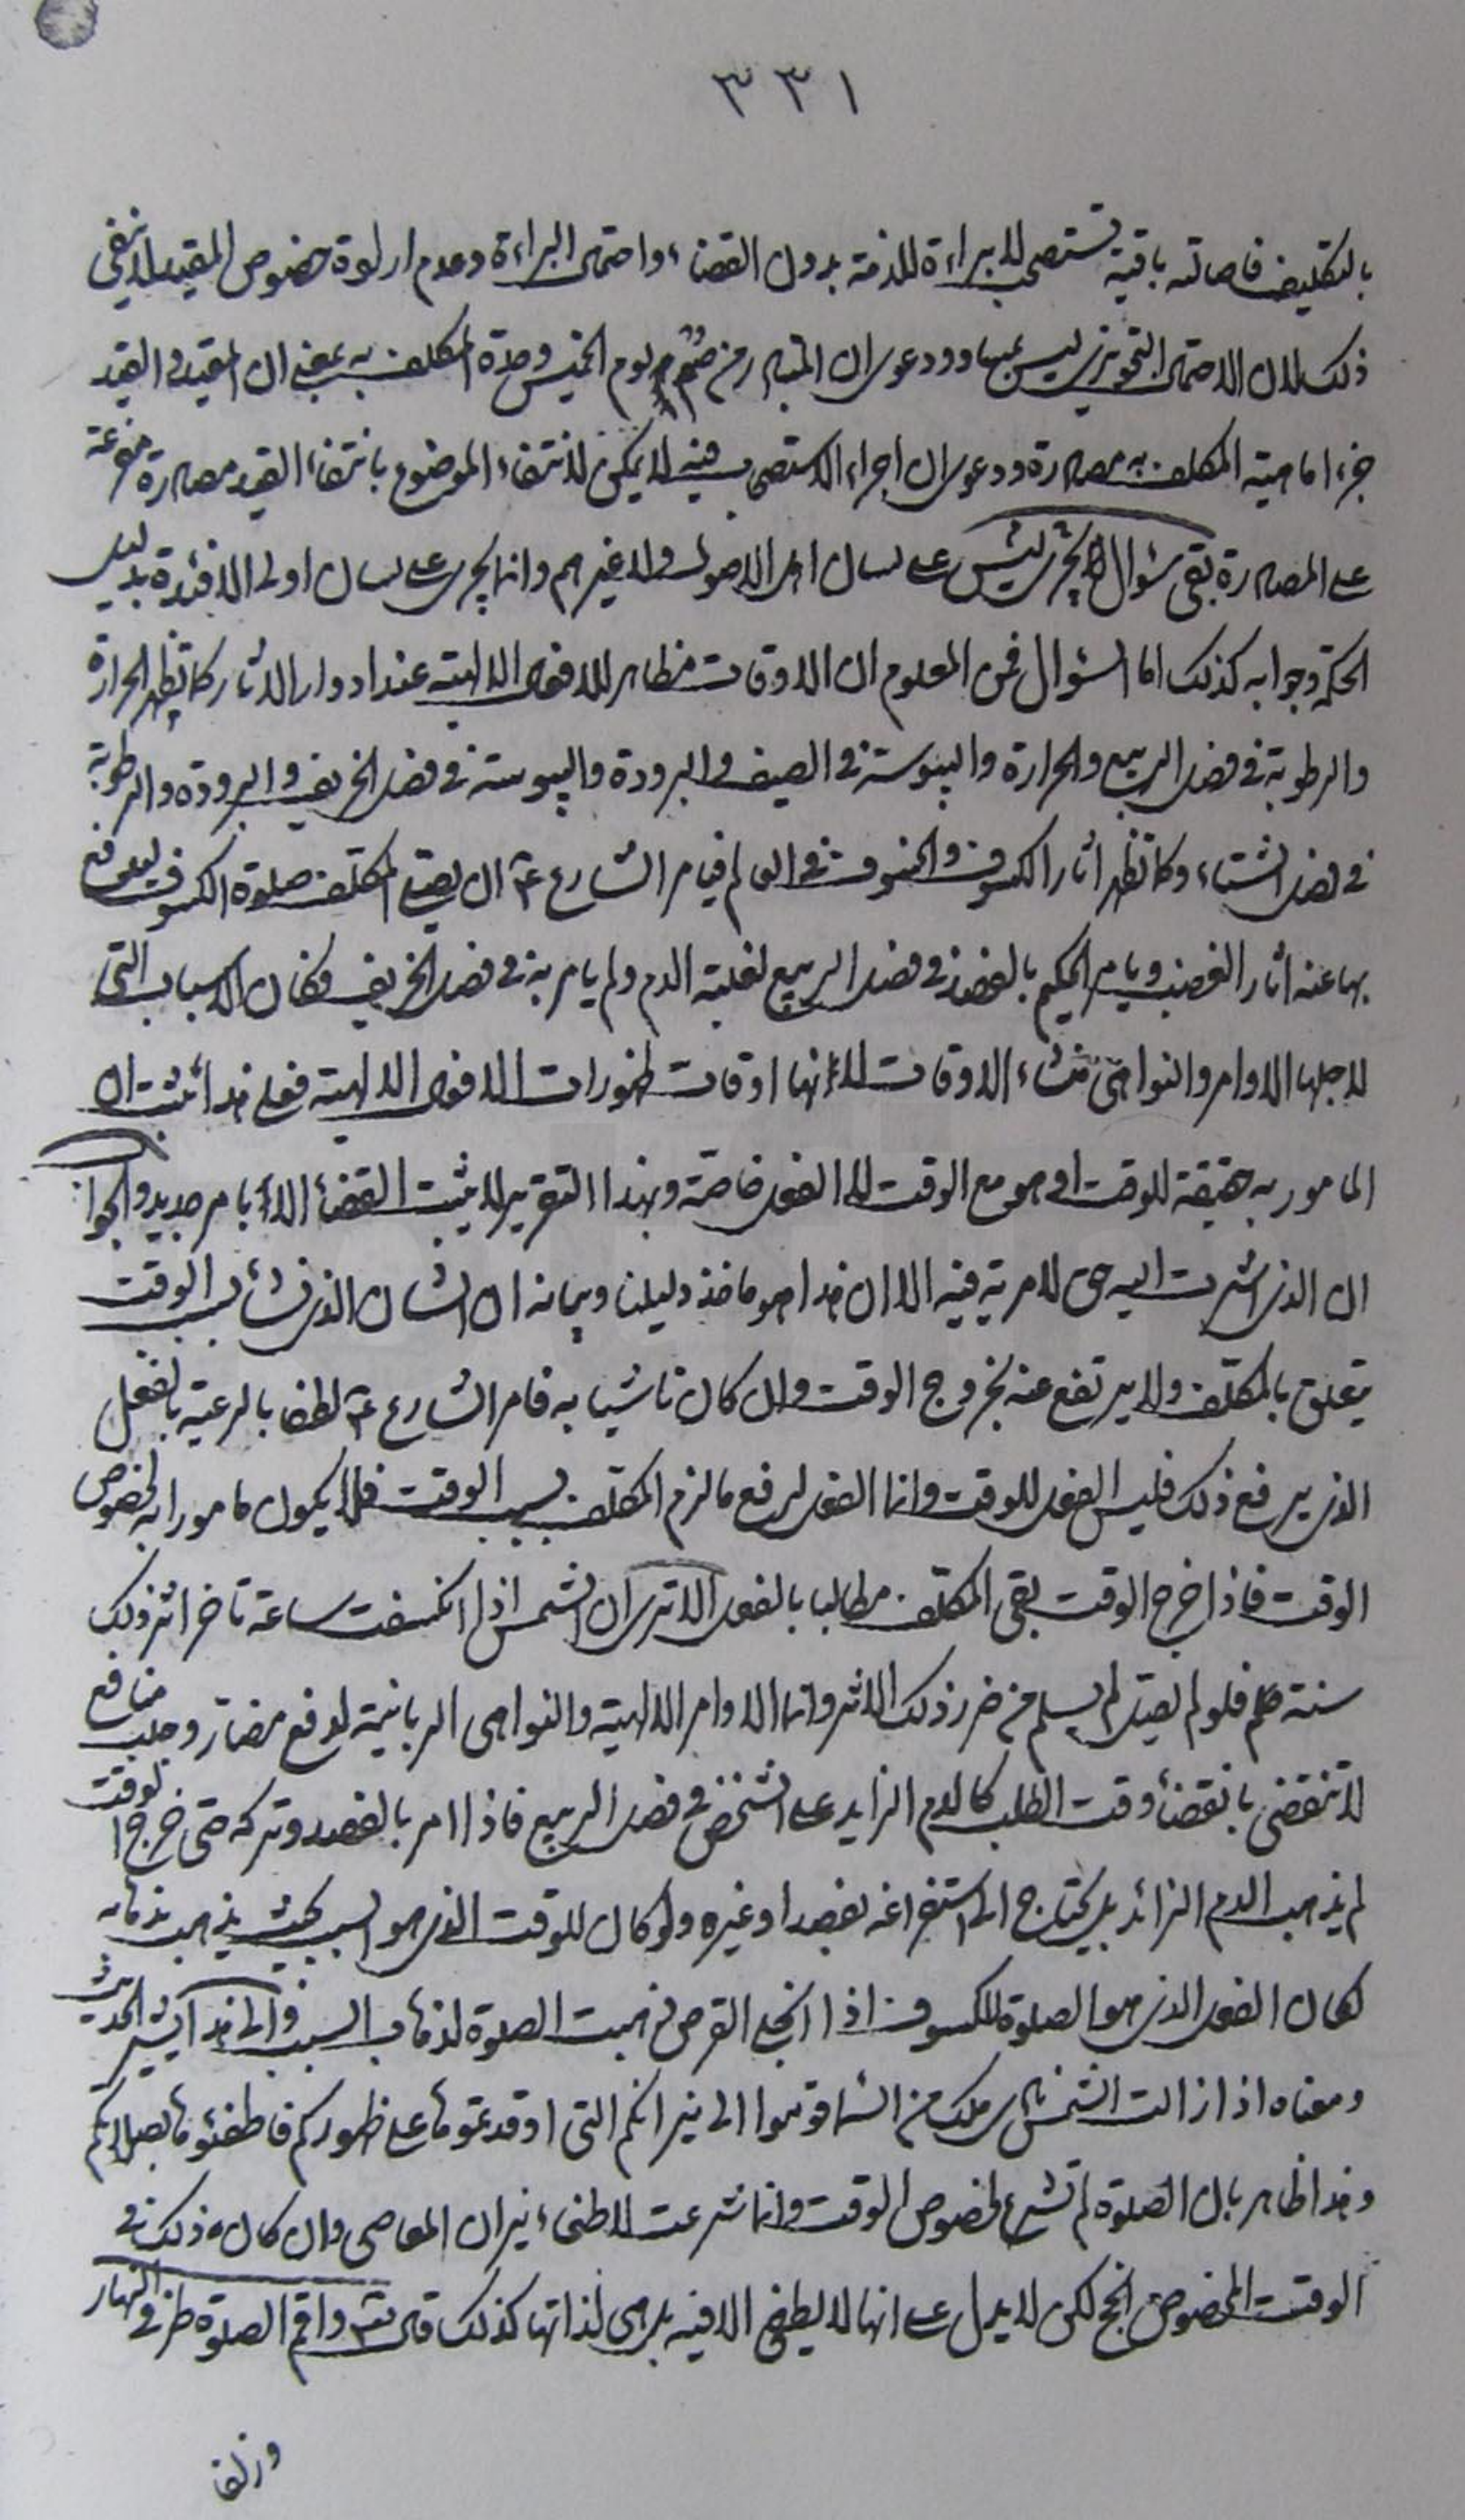 ٣٣١
بالتكليف فاصالته باقية تستصحب لا براءة للذمة بدون القضاء واحتمال البراءة وعدم ارادة خصوص المقيد لا ينفي
ذلك لان الاحتمال التجويزي ليس بمساوٍ ودعوى ان المتبادر من صُمْ يوم الخميس وحدة المكلف به بمعنى ان المقيد والقيد
جزءا ماهية المكلف به مصادرة ودعوى ان اجراء الاستصحاب فيه لا يمكن لانتفاء الموضوع بانتفاء القيد مصادرة متفرعة
على المصادرة بقي سؤال لا يجري على لسان اهل الاصول ولا غيرهم وانما يجري على لسان اولى الافئدة بدليل
الحكمة وجوابه كذلك اما السؤال فمن المعلوم ان الاوقات مظاهر للافعال الالهية عند ادوار الاثار كما تظهر الحرارة
والرطوبة في فصل الربيع والحرارة واليبوسة في الصيف والبرودة واليبوسة في فصل الخريف والبرودة والرطوبة
في فصل الشتاء وكما تظهر اثار الكسوف والخسوف في العالم فيامر الشارع ع ان يصلي المكلف صلوة الكسوف ليدفع
بها عنه اثار الغضب ويامر الحكيم بالفصد في فصل الربيع لغلبة الدم ولم يامر به في فصل الخريف فكان الاسباب التي
لاجلها الاوامر والنواهي منشاء الاوقات لانها اوقات ظهورات الافعال الالهية فعلى هذا يثبت ان
المامور به حقيقة للوقت او هو مع الوقت لا الفعل خاصة وبهذا التقرير لا يثبت القضاء الا بامر جديد والجواب
ان الذي اشرت اليه حق لا مرية فيه الا ان هذا هو ماخذ دليلنا وبيانه ان الشان الذي نشأ بسبب الوقت
يتعلق بالمكلف ولا يرتفع عنه بخروج الوقت وان كان ناشيا به فامر الشارع ع لطفا بالرعية بالفعل
الذي يرفع ذلك فليس الفعل للوقت وانما الفعل لرفع ما لزم المكلف بسبب الوقت فلا يكون مامورا به لخصوص
الوقت فاذا خرج الوقت بقي المكلف مطالبا بالفعل الا ترى ان الشمس اذا انكسفت ساعة تاخر اثر ذلك
سنة فلو لم يصل لم يسلم من ضرر ذلك الاثر وانما الاوامر الالهية والنواهي الربانية لدفع مضار وجلب منافع
لا تنقضي بانقضاء وقت الطلب كالدم الزايد على الشخص في فصل الربيع فاذا امر بالفصد وتركه حتى خرج الوقت
لم يذهب الدم الزائد بل يحتاج الى استفراغه بفصد او غيره ولو كان للوقت الذي هو السبب بحيث يذهب بذهابه
لكان الفعل الذي هو الصلوة للكسوف اذا انجلى القرص ذهبت الصلوة لذهاب السبب والى هذا يشير الحديث
ومعناه اذا زالت الشمس نادى ملك من السماء قوموا الى نيرانكم التي اوقدتموها على ظهوركم فاطفئوها بصلاتكم
وهذا ظاهر بان الصلوة لم تشرع لخصوص الوقت وانما شرعت لاطفاء نيران المعاصي وان كان ذلك في
الوقت المخصوص انجح لكن لا يدل على انها لا يطفي الا فيه بل هي لذاتها كذلك قال تعالى واقم الصلوة طرفي النهار
وزلفا